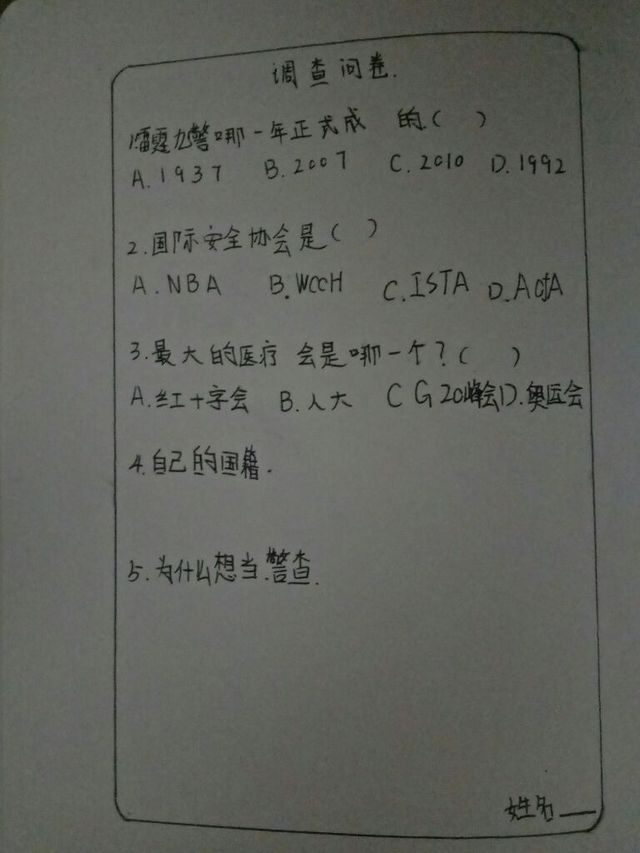 调查问卷.
1.雷霆九警哪一年正式成 的( )
A.1937 B.2007 C.2010 D.1992
2.国际安全协会是( )
A.NBA B.WccH C.ISTA D.
3.最大的医疗 会是哪一个?( )
A.红十字会 B.人大 C G20峰会 D.奥运会
4.自己的国籍.
5.为什么想当.警查.
姓名